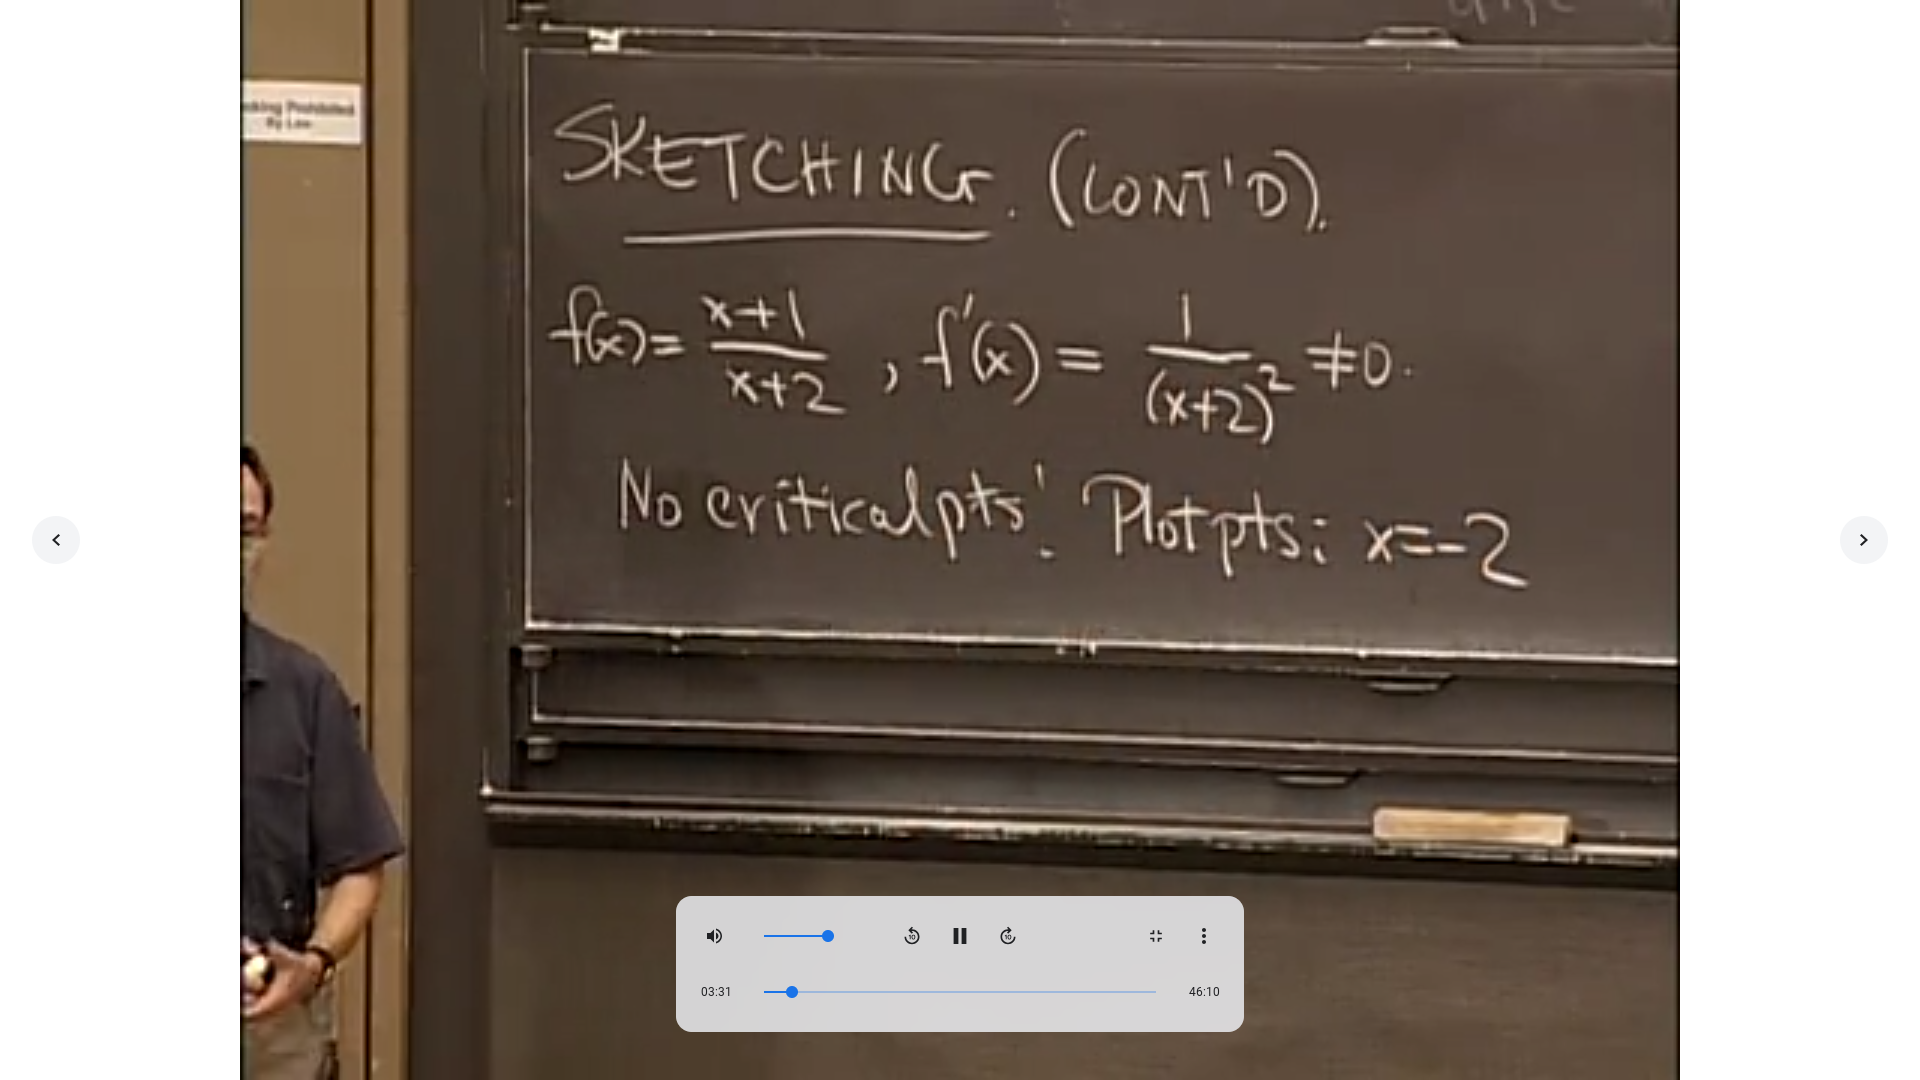 Prohibited
By Law
SKETCHING. (CONT'D).
f(x) = x+1/x+2 , f'(x) = 1/(x+2)² ≠0.
No critical pts! Plot pts: x=-2
03:31
46:10